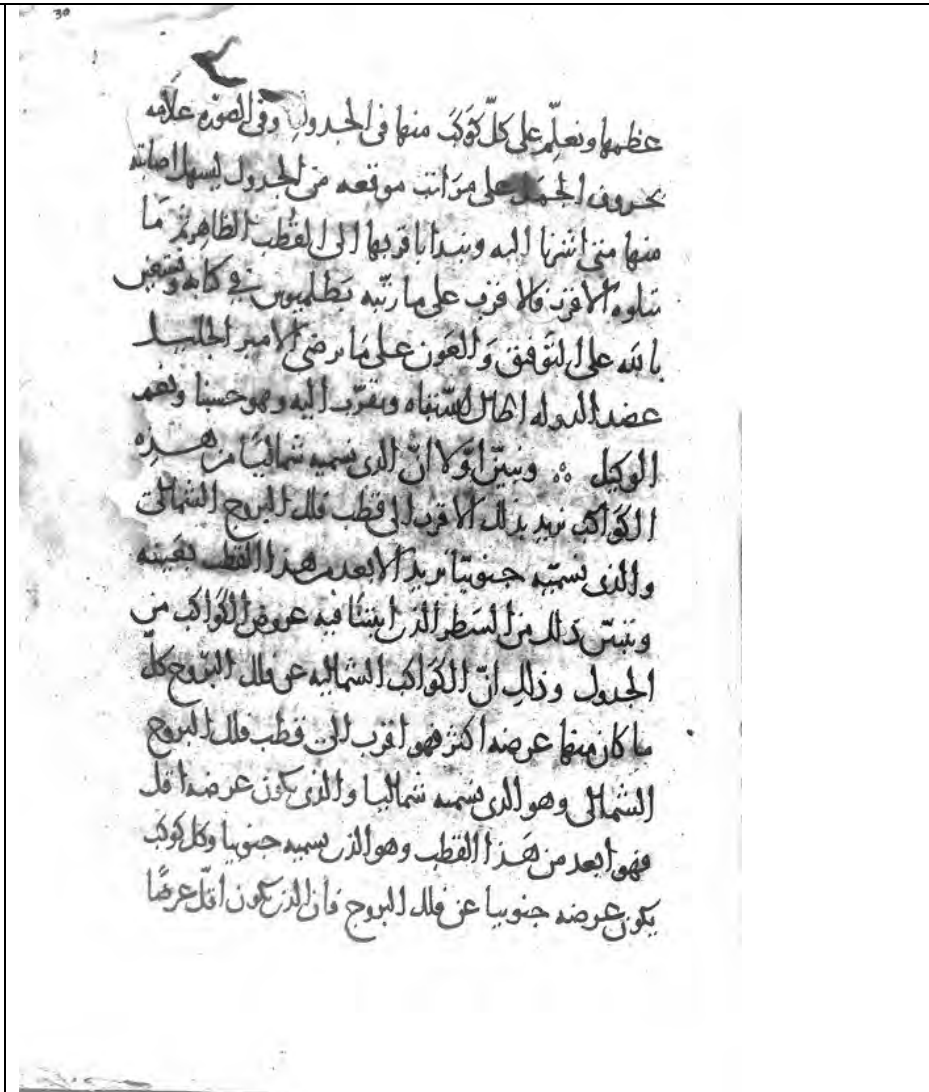 30
عظمها ونعلّم على كلّ كوكب منها في الجدول وفي الصورة علامه
بحروف الجمّل على مراتب موقعه من الجدول ليسهل اصابته
منها متى اشرنا اليه ونبدا باقربها الى القطب الظاهر ثم ما
يتلوه الاقرب فالاقرب على ما رتّبه بطلميوس في كتابه ونستعين
بالله على التوفيق والعون على ما يرضى الامير الجليل
عضد الدوله اطال الله بقاه ويقرّب اليه وهو حسبنا ونعم
الوكيل ونبيّن اوّلا انّ الذي نسميه شماليّا من هذه
الكواكب نريد بذلك الاقرب الى قطب فلك البروج الشمالي
والذي نسمّيه جنوبيّا نريد الابعد من هذا القطب بعينه
ونبيّن ذلك من السطر الذي اثبتنا فيه عروض الكواكب من
الجدول وذلك انّ الكواكب الشماليه عن فلك البروج كلّ
ما كان منها عرضه اكثر فهو اقرب الى قطب فلك البروج
الشمالي وهو الذي نسميه شماليا والذي يكون عرضه اقل
فهو ابعد من هذا القطب وهو الذي نسميه جنوبيا وكل كوكب
يكون عرضه جنوبيا عن فلك البروج فان الذي يكون اقلّ عرضًا